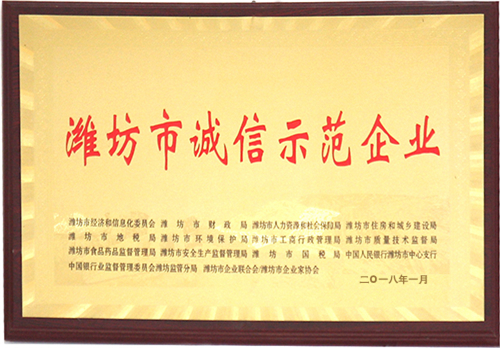 潍坊市诚信示范企业
潍坊市经济和信息化委员会 潍坊市财政局 潍坊市人力资源和社会保障局 潍坊市住房和城乡建设局
潍坊市地税局 潍坊市环境保护局 潍坊市工商行政管理局 潍坊市质量技术监督局
潍坊市食品药品监督管理局 潍坊市安全生产监督管理局 潍坊市国税局 中国人民银行潍坊市中心支行
中国银行业监督管理委员会潍坊监管分局 潍坊市企业联合会/潍坊市企业家协会
二〇一八年一月